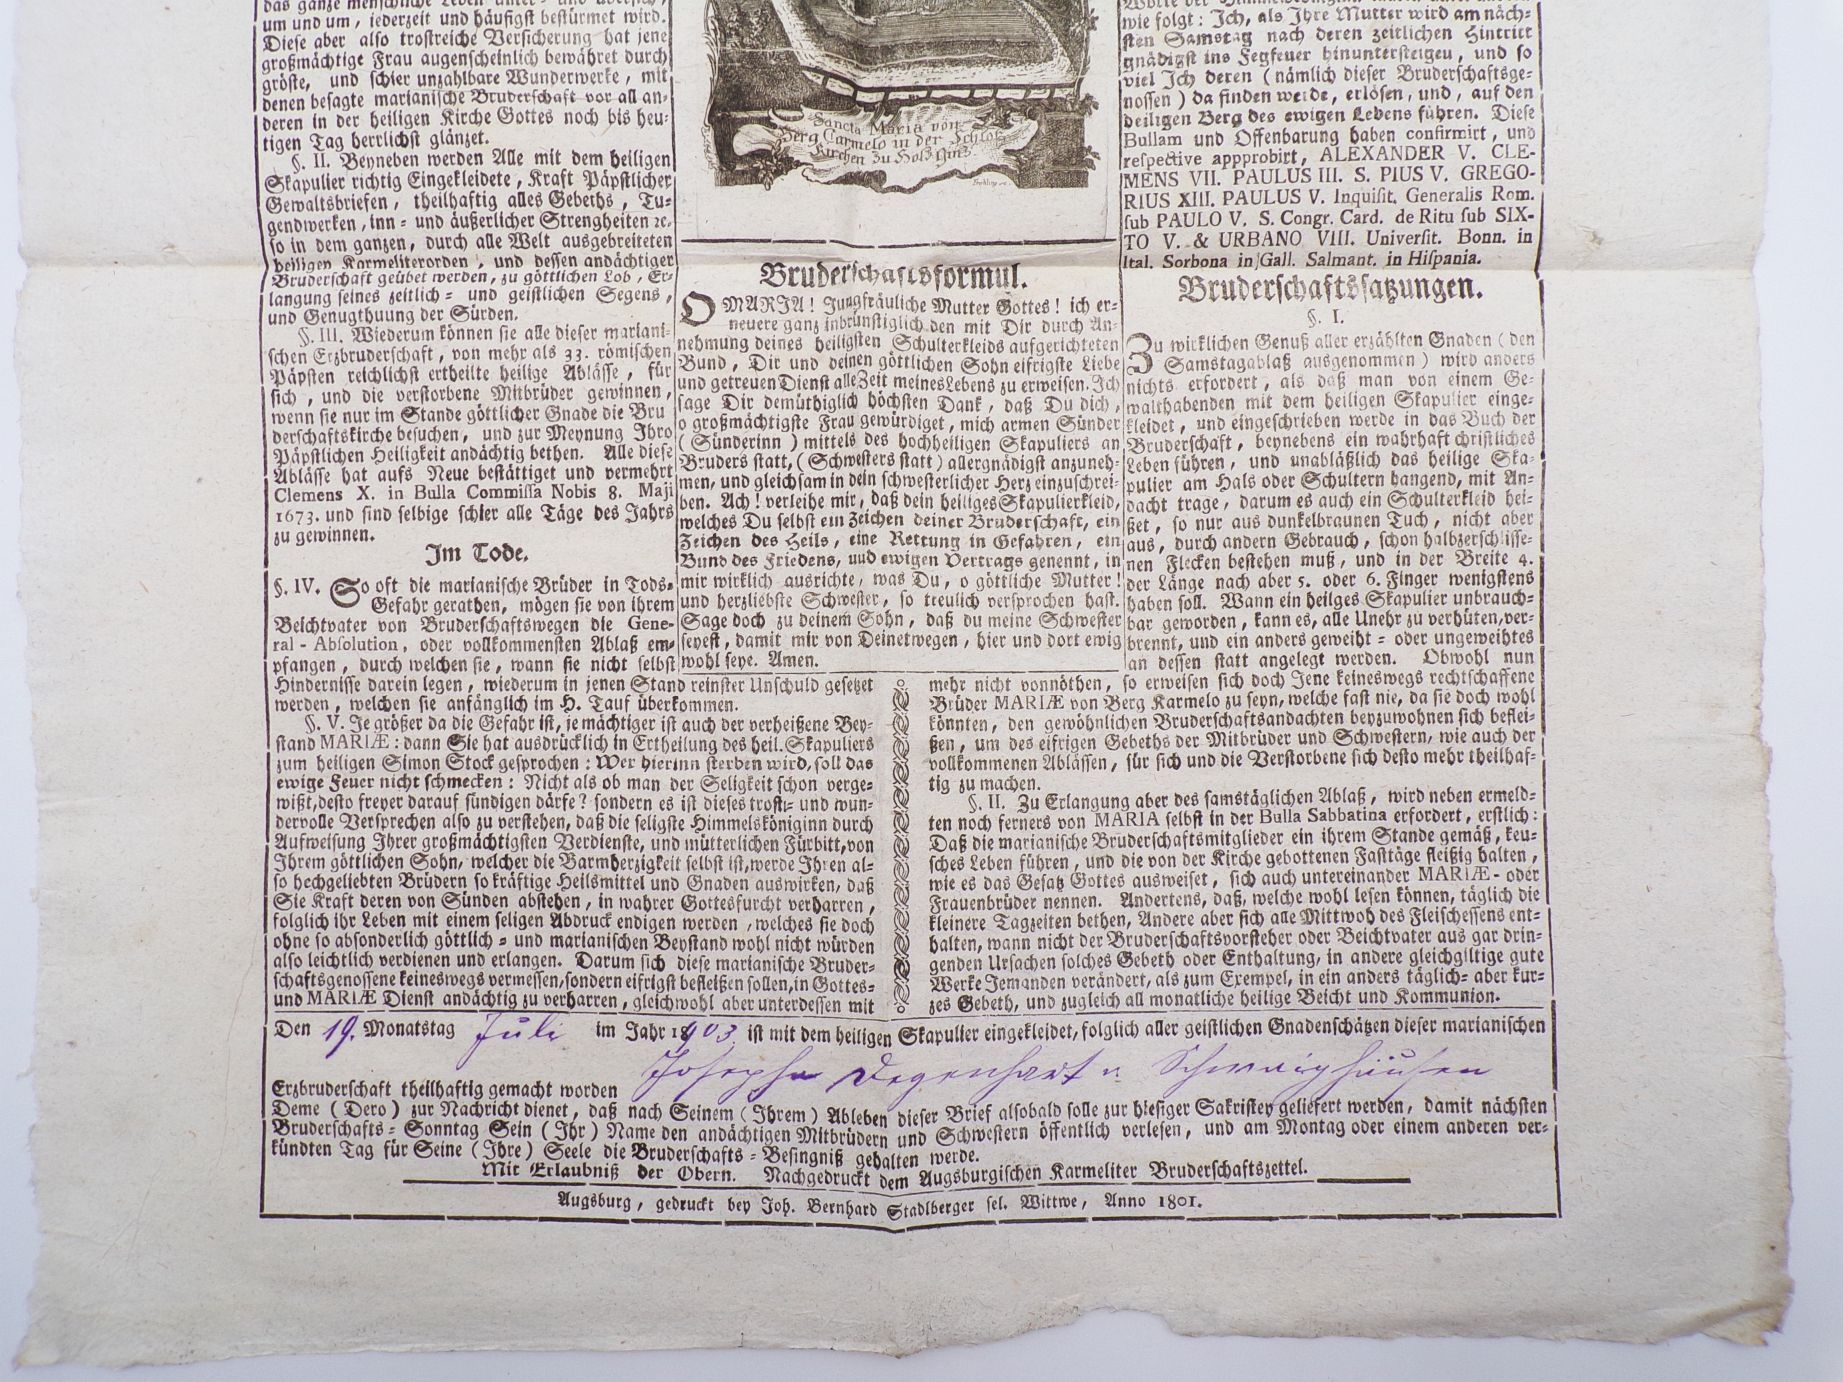 das ganze menschliche Leben unter- und
um und um, jederzeit und häufigst bestürmet wird.
Diese aber also trostreiche Versicherung hat jene
großmächtige Frau augenscheinlich bewähret durch
gröste, und schier unzahlbare Wunderwerke, mit
denen besagte marianische Bruderschaft vor all an-
deren in der heiligen Kirche Gottes noch bis heu-
tigen Tag herrlichst glänzet.
§. II. Beyneben werden Alle mit dem heiligen
Skapulier richtig Eingekleidete, Kraft Päpstlicher
Gewaltsbriefen, theilhaftig alles Gebeths, Tu-
gendwerken, inn- und äußerlicher Strengheiten ꝛc.
so in dem ganzen, durch alle Welt ausgebreiteten
heiligen Karmeliterorden, und dessen andächtiger
Bruderschaft geübet werden, zu göttlichen Lob, Er-
langung seines zeitlich- und geistlichen Segens,
und Genugthuung der Sürden.
§. III. Wiederum können sie alle dieser mariani-
schen Erzbruderschaft, von mehr als 33. römischen
Päpsten reichlichst ertheilte heilige Ablässe, für
sich, und die verstorbene Mitbrüder gewinnen,
wenn sie nur im Stande göttlicher Gnade die Bru
derschaftskirche besuchen, und zur Meynung Ihro
Päpstlichen Heiligkeit andächtig bethen. Alle diese
Ablässe hat aufs Neue bestättiget und vermehrt
Clemens X. in Bulla Commissa Nobis 8. Maji
1673. und sind selbige schier alle Täge des Jahrs
zu gewinnen.
Im Tode.
§. IV. So oft die marianische Brüder in Tods-
Gefahr gerathen, mögen sie von ihrem
Beichtvater von Bruderschaftswegen die Gene-
ral-Absolution, oder vollkommensten Ablaß em-
pfangen, durch welchen sie, wann sie nicht selbst
Hindernisse darein legen, wiederum in jenen Stand reinster Unschuld gesetzet
werden, welchen sie anfänglich im H. Tauf überkommen.
§. V. Je größer da die Gefahr ist, je mächtiger ist auch der verheißene Bey-
stand MARIÆ: dann Sie hat ausdrücklich in Ertheilung des heil. Skapuliers
zum heiligen Simon Stock gesprochen: Wer hierinn sterben wird, soll das
ewige Feuer nicht schmecken: Nicht als ob man der Seligkeit schon verge-
wißt, desto freyer darauf sündigen därfe? sondern es ist dieses trost- und wun-
dervolle Versprechen also zu verstehen, daß die seligste Himmelsköniginn durch
Aufweisung Ihrer großmächtigsten Verdienste, und mütterlichen Fürbitt, von
Ihrem göttlichen Sohn, welcher die Barmherzigkeit selbst ist, werde Ihren al-
so hochgeliebten Brüdern so kräftige Heilsmittel und Gnaden auswirken, daß
Sie Kraft deren von Sünden abstehen, in wahrer Gottesfurcht verharren,
folglich ihr Leben mit einem seligen Abdruck endigen werden, welches sie doch
ohne so absonderlich göttlich- und marianischen Beystand wohl nicht würden
also leichtlich verdienen und erlangen. Darum sich diese marianische Bruder-
schaftsgenossene keineswegs vermessen, sondern eifrigst befleißen sollen, in Gottes-
und MARIÆ Dienst andächtig zu verharren, gleichwohl aber unterdessen mit
Sancta Maria von
Berg Carmelo in der Schlos
Kirchen zu Holzginz
Bruderschaftsformul.
O MARIA! Jungfräuliche Mutter Gottes! ich er-
neuere ganz inbrünstiglich den mit Dir durch An-
nehmung deines heiligsten Schulterkleids aufgerichteten
Bund, Dir und deinen göttlichen Sohn eifrigste Liebe
und getreuen Dienst alle Zeit meines Lebens zu erweisen. Ich
sage Dir demüthiglich höchsten Dank, daß Du dich,
o großmächtigste Frau gewürdiget, mich armen Sünder
(Sünderinn) mittels des hochheiligen Skapuliers an
Bruders statt, (Schwesters statt) allergnädigst anzuneh-
men, und gleichsam in dein schwesterlicher Herz einzuschrei-
ben. Ach! verleihe mir, daß dein heiliges Skapulierkleid,
welches Du selbst ein Zeichen deiner Bruderschaft, ein
Zeichen des Heils, eine Rettung in Gefahren, ein
Bund des Friedens, uud ewigen Vertrags genennt, in
mir wirklich ausrichte, was Du, o göttliche Mutter!
und herzliebste Schwester, so treulich versprochen hast.
Sage doch zu deinem Sohn, daß du meine Schwester
seyest, damit mir von Deinetwegen, hier und dort ewig
wohl seye. Amen.
wie folgt: Ich, als Ihre Mutter wird am näch-
sten Samstag nach deren zeitlichen Hintritt
gnädigst ins Fegfeuer hinuntersteigeu, und so
viel Ich deren (nämlich dieser Bruderschaftsge-
nossen) da finden werde, erlösen, und, auf den
heiligen Berg des ewigen Lebens führen. Diese
Bullam und Offenbarung haben confirmirt, und
respective appprobirt, ALEXANDER V. CLE-
MENS VII. PAULUS III. S. PIUS V. GREGO-
RIUS XIII. PAULUS V. Inquisit. Generalis Rom.
sub PAULO V. S. Congr. Card. de Ritu sub SIX-
TO V. & URBANO VIII. Universit. Bonn. in
Ital. Sorbona in Gall. Salmant. in Hispania.
Bruderschaftssatzungen.
§. I.
Zu wirklichen Genuß aller erzählten Gnaden (den
Samstagablaß ausgenommen) wird anders
nichts erfordert, als daß man von einem Ge-
walthabenden mit dem heiligen Skapulier einge-
kleidet, und eingeschrieben werde in das Buch der
Bruderschaft, beynebens ein wahrhaft christliches
Leben führen, und unabläßlich das heilige Ska-
pulier am Hals oder Schultern hangend, mit An-
dacht trage, darum es auch ein Schulterkleid hei-
ßet, so nur aus dunkelbraunen Tuch, nicht aber
aus, durch andern Gebrauch, schon halbzerschlisse-
nen Flecken bestehen muß, und in der Breite 4.
der Länge nach aber 5. oder 6. Finger wenigstens
haben soll. Wann ein heilges Skapulier unbrauch-
bar geworden, kann es, alle Unehr zu verhüten, ver-
brennt, und ein anders geweiht- oder ungeweihtes
an dessen statt angelegt werden. Obwohl nun
mehr nicht vonnöthen, so erweisen sich doch Jene keineswegs rechtschaffene
Brüder MARIÆ von Berg Karmelo zu seyn, welche fast nie, da sie doch wohl
könnten, den gewöhnlichen Bruderschaftsandachten beyzuwohnen sich beflei-
ßen, um des eifrigen Gebeths der Mitbrüder und Schwestern, wie auch der
vollkommenen Ablässen, für sich und die Verstorbene sich desto mehr theilhaf-
tig zu machen.
§. II. Zu Erlangung aber des samstäglichen Ablaß, wird neben ermeld-
ten noch ferners von MARIA selbst in der Bulla Sabbatina erfordert, erstlich:
Daß die marianische Bruderschaftsmitglieder ein ihrem Stande gemäß, keu-
sches Leben führen, und die von der Kirche gebottenen Fasttäge fleißig halten,
wie es das Gesatz Gottes ausweiset, sich auch untereinander MARIÆ- oder
Frauenbrüder nennen. Andertens, daß, welche wohl lesen können, täglich die
kleinere Tagzeiten bethen, Andere aber sich alle Mittwoh des Fleischessens ent-
halten, wann nicht der Bruderschaftsvorsteher oder Beichtvater aus gar drin-
genden Ursachen solches Gebeth oder Enthaltung, in andere gleichgiltige gute
Werke Jemanden verändert, als zum Exempel, in ein anders täglich- aber kur-
zes Gebeth, und zugleich all monatliche heilige Beicht und Kommunion.
Den 19. Monatstag Juli im Jahr 1903 ist mit dem heiligen Skapulier eingekleidet, folglich aller geistlichen Gnadenschätzen dieser marianischen
Erzbruderschaft theilhaftig gemacht worden Josepha Degenhart v. Schwaighausen
Deme (Dero) zur Nachricht dienet, daß nach Seinem (Ihrem) Ableben dieser Brief alsobald solle zur hiesiger Sakristey geliefert werden, damit nächsten
Bruderschafts-Sonntag Sein (Ihr) Name den andächtigen Mitbrüdern und Schwestern öffentlich verlesen, und am Montag oder einem anderen ver-
kündten Tag für Seine (Ihre) Seele die Bruderschafts-Besingniß gehalten werde.
Mit Erlaubniß der Obern. Nachgedruckt dem Augsburgischen Karmeliter Bruderschaftszettel.
Augsburg, gedruckt bey Joh. Bernhard Stadlberger sel. Wittwe, Anno 1801.